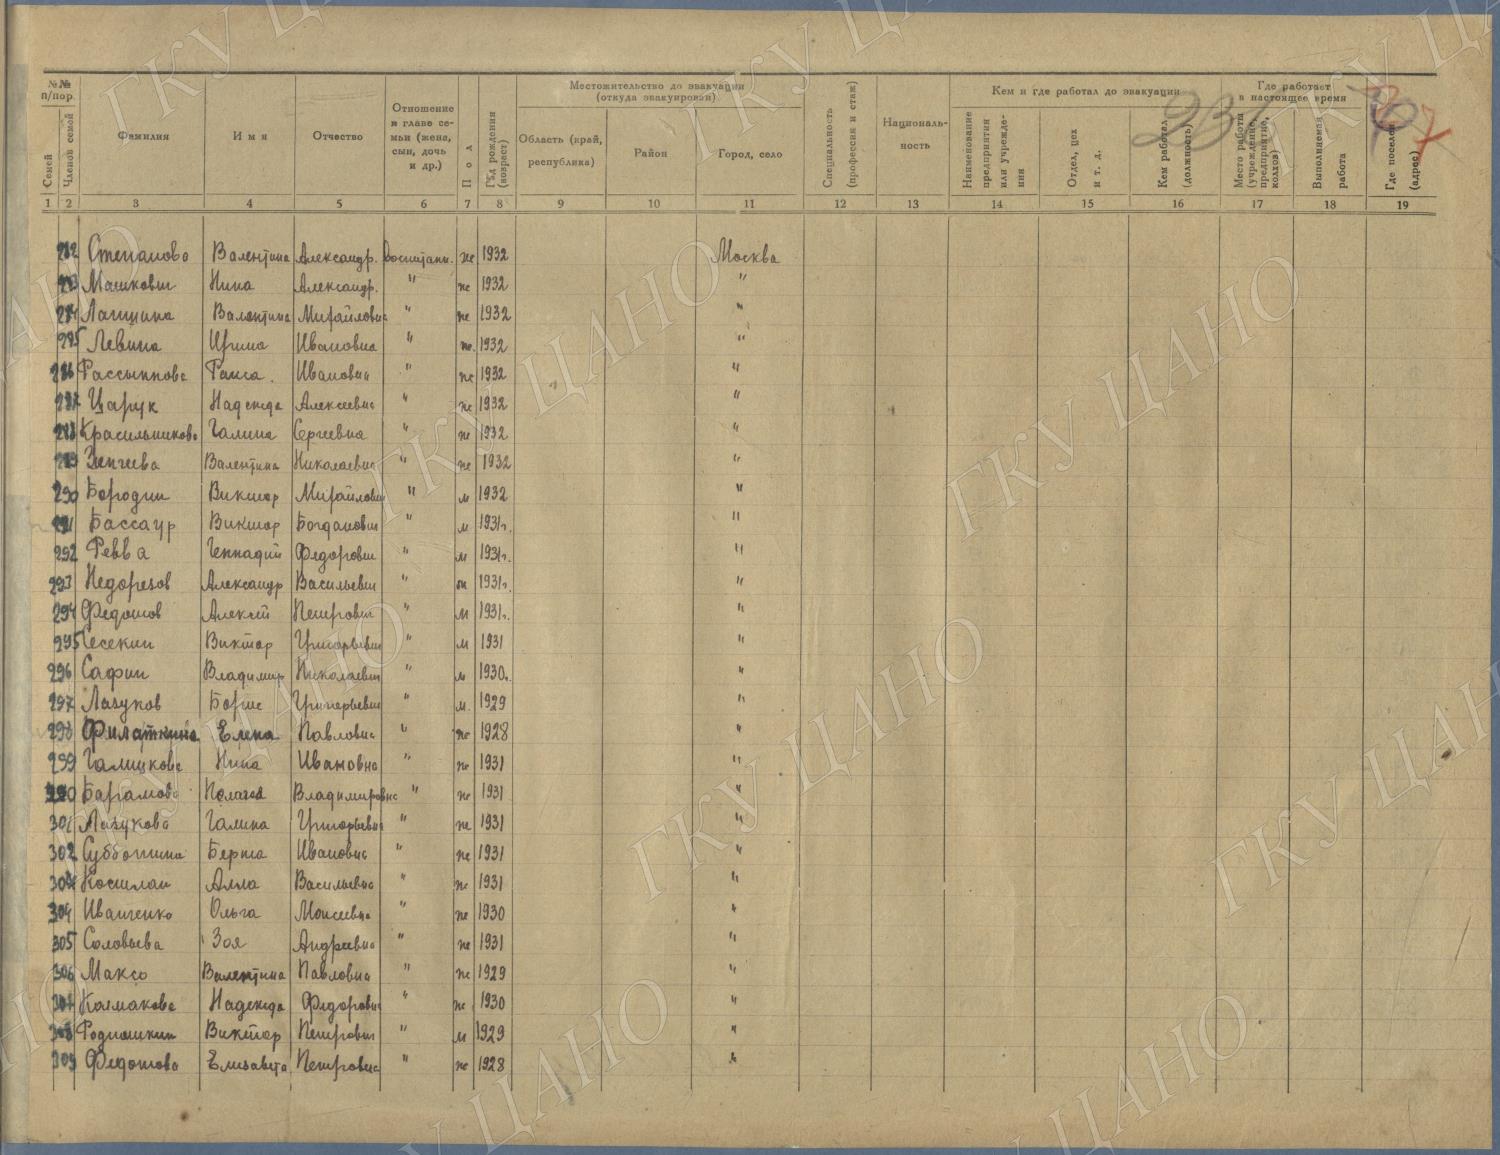 №№ п/пор.
Семей
Членов семей
Фамилия
Имя
Отчество
Отношение к главе семьи (жена, сын, дочь и др.)
Пол
Год рождения (возраст)
Местожительство до эвакуации (откуда эвакуирован)
Область (край, республика)
Район
Город, село
Специальность (профессия и стаж)
Национальность
Кем и где работал до эвакуации
Наименование предприятия или учреждения
Отдел, цех и т. д.
Кем работал (должность)
Где работает в настоящее время
Место работы (учреждение, предприятие, колхоз)
Выполняемая работа
Где поселен (адрес)
1 2 3 4 5 6 7 8 9 10 11 12 13 14 15 16 17 18 19
282 Степанова Валентина Александр. Воспитанн. ж 1932 Москва
283 Машкович Нина Александр. " ж 1932 "
284 Лапшина Валентина Михайловна " ж 1932 "
285 Левина Ирина Ивановна " ж. 1932 "
286 Рассыпнова Раиса. Ивановна " ж 1932 "
287 Царук Надежда Алексеевна " ж 1932 "
288 Красильникова Галина Сергеевна " ж 1932 "
289 Валентина Николаевна " ж 1932 "
290 Бородин Виктор Михайлович " м 1932 "
291 Бассаур Виктор Богданович " м 1931г. "
292 Ревва Геннадий Федорович " м 1931г. "
293 Недорезов Александр Васильевич " м 1931г. "
294 Федотов Алексей Петрович " м 1931г. "
295 Сесекин Виктор Григорьевич " м 1931 "
296 Сафин Владимир Николаевич " м 1930г. "
297 Лазуков Борис Григорьевич " м. 1929 "
298 Филаткина Елена Павловна " ж 1928 "
299 Галицкова Нина Ивановна " ж 1931 "
Баранова Владимировна " ж 1931 "
301 Лазукова Галина Григорьевна " ж 1931 "
302 Субботина Берта Ивановна " ж 1931 "
Алла Васильевна " ж 1931 "
304 Иванченко Ольга Моисеевна " ж 1930 "
305 Соловьева Зоя Андреевна " ж 1931 "
306 Максо Валентина Павловна " ж 1929 "
307 Колмакова Надежда Федоровна " ж 1930 "
308 Родюшкин Виктор Петрович " м 1929 "
309 Федотова Елизавета Петровна " ж 1928 "
ГКУ ЦАНО